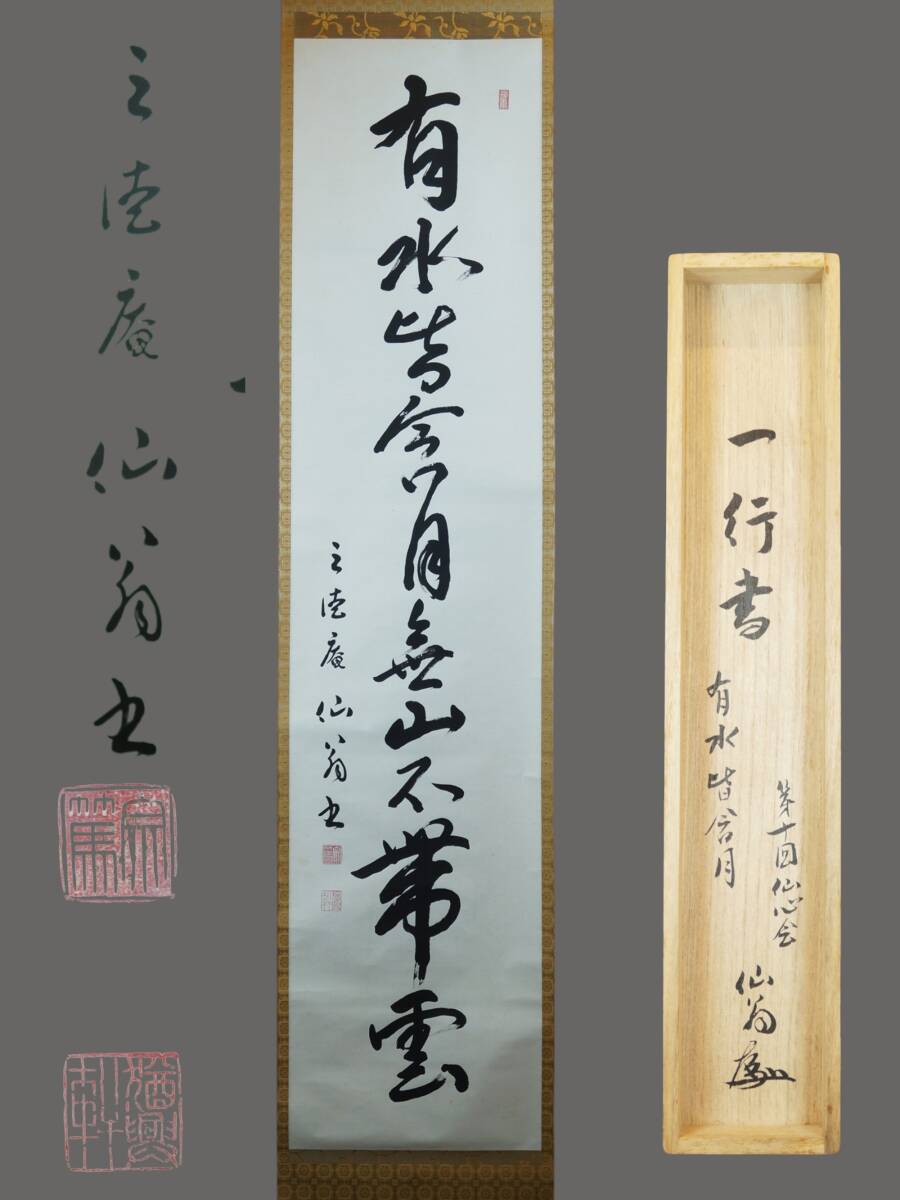 有水皆含月無山不帯雲
玄徳庵 仙翁書
一行書
有水皆含月
第十回仙心会
仙翁
玄徳庵 仙翁書
宗篤